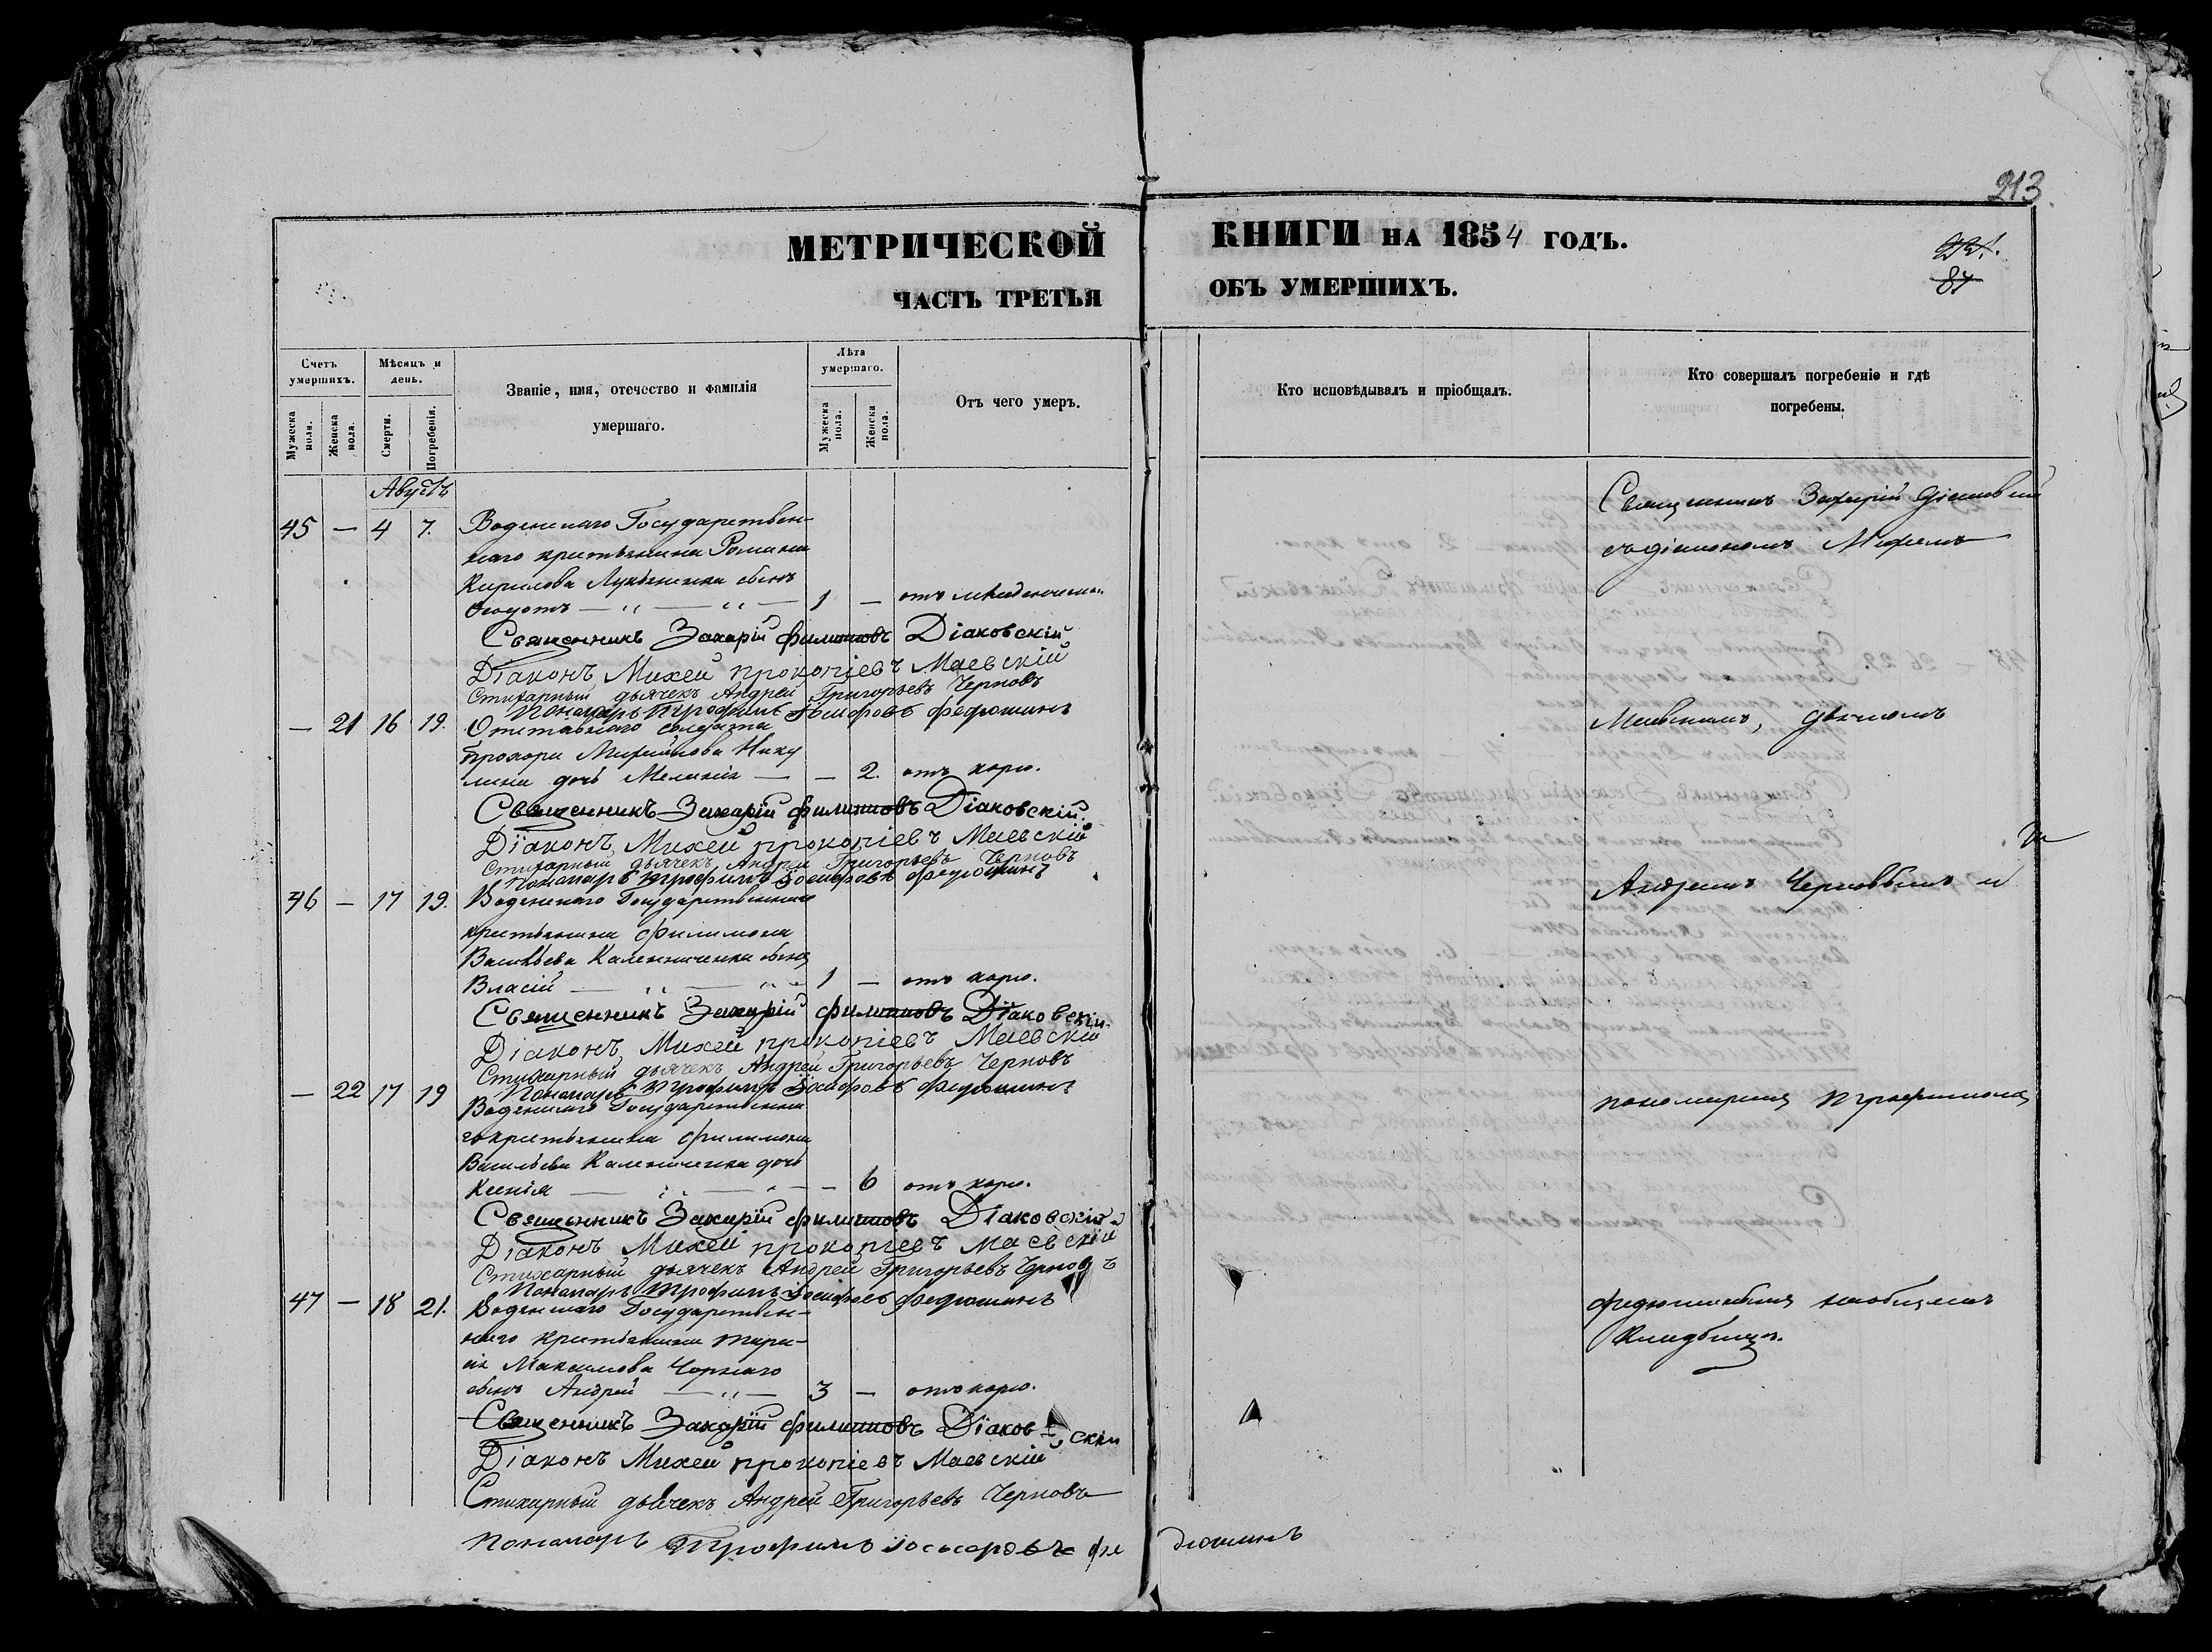 213
МЕТРИЧЕСКОЙ КНИГИ НА 1854 ГОДЪ.
87
ЧАСТЬ ТРЕТЬЯ ОБЪ УМЕРШИХЪ.
Счетъ умершихъ.
Мужеска пола.
Женска пола.
Мѣсяцъ и день.
Смерти.
Погребенія.
Званіе, имя, отечество и фамилія
умершаго.
Лѣта умершаго.
Мужеска пола.
Женска пола.
Отъ чего умеръ.
Кто исповѣдывалъ и пріобщалъ.
Кто совершалъ погребеніе и гдѣ
погребены.
Августъ
45 — 4 7. Государствен-
наго крестьянина Романа
Кирилова сынъ
1 —
Священникъ Захарій Филиповъ Діаковскій
Діаконъ Михей Прокопіевъ Маевскій
Стихарный дьячекъ Андрей Григорьевъ Черновъ
Пономарь Трофимъ Іосифовъ Федюшинъ
— 21 16 19. Отставнаго солдата
Прохора
дочь Меланія — — 2. отъ корю.
Священникъ Захарій Филиповъ Діаковскій
Діаконъ Михей Прокопіевъ Маевскій
Стихарный дьячекъ Андрей Григорьевъ Черновъ
Пономарь Трофимъ Іосифовъ Федюшинъ
46 — 17 19. Государственнаго
крестьянина Филимона
Васильева Калениченка сынъ
Власій 1 — отъ корю.
Священникъ Захарій Филиповъ Діаковскій
Діаконъ Михей Прокопіевъ Маевскій
Стихарный дьячекъ Андрей Григорьевъ Черновъ
Пономарь Трофимъ Іосифовъ Федюшинъ
— 22 17 19 Государственна
го крестьянина Филимона
Васильева Калениченка дочь
Ксенія — — 6 отъ корю.
Священникъ Захарій Филиповъ Діаковскій
Діаконъ Михей Прокопіевъ Маевскій
Стихарный дьячекъ Андрей Григорьевъ Черновъ
Пономарь Трофимъ Іосифовъ Федюшинъ
47 — 18 21. Государствен-
наго крестьянина Тара-
сія Максимова Чорнаго
сынъ Андрей — 3 — отъ корю.
Священникъ Захарій Филиповъ Діаковскій
Діаконъ Михей Прокопіевъ Маевскій
Стихарный дьячекъ Андрей Григорьевъ Черновъ
Пономарь Трофимъ Іосифовъ Федюшинъ
Священникъ Захарій Діаковскій
съ діакономъ Михеемъ
Маевскимъ, дьячкомъ
Андреемъ Черновымъ и
пономаремъ Трофимомъ
Федюшинымъ на общемъ
кладбищѣ.